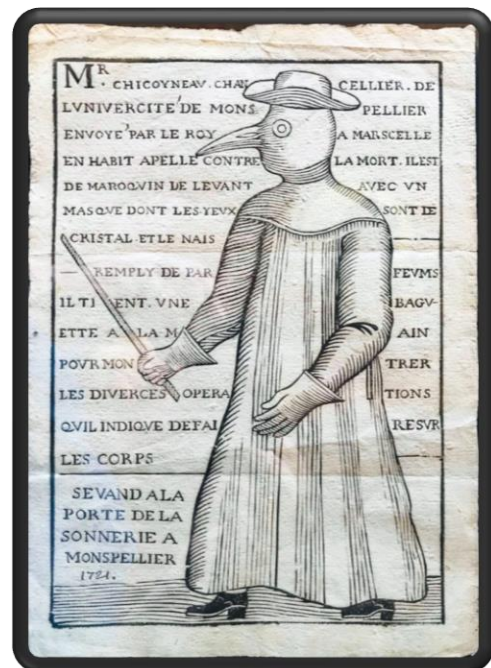 MR. CHICOYNEAV. CHAN CELLIER. DE
LVNIVERCITÉ DE MONS PELLIER
ENVOYÉ PAR LE ROY A MARSCELLE
EN HABIT APELLE CONTRE LA MORT. ILEST
DE MAROQVIN DE LEVANT AVEC VN
MASQVE DONT LES YEVX SONT DE
CRISTAL. ET LE NAIS
REMPLY DE PAR FEVMS
IL TI ENT. VNE BAGV-
ETTE A LA M AIN
POVR MON TRER
LES DIVERCES OPERA TIONS
QVIL INDIQVE DEFAI RESVR
LES CORPS
SEVAND ALA
PORTE DE LA
SONNERIE A
MONSPELLIER
1721.